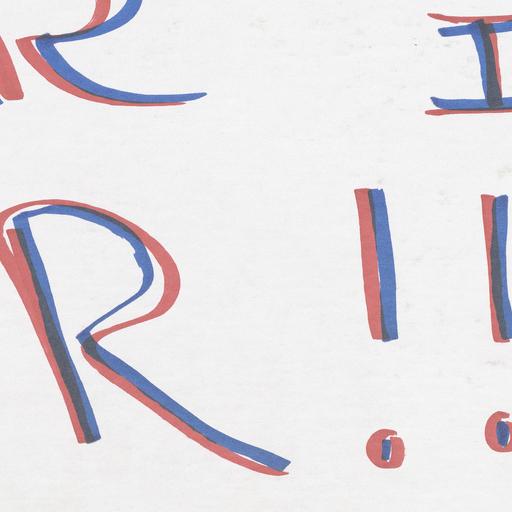 R I
R!!